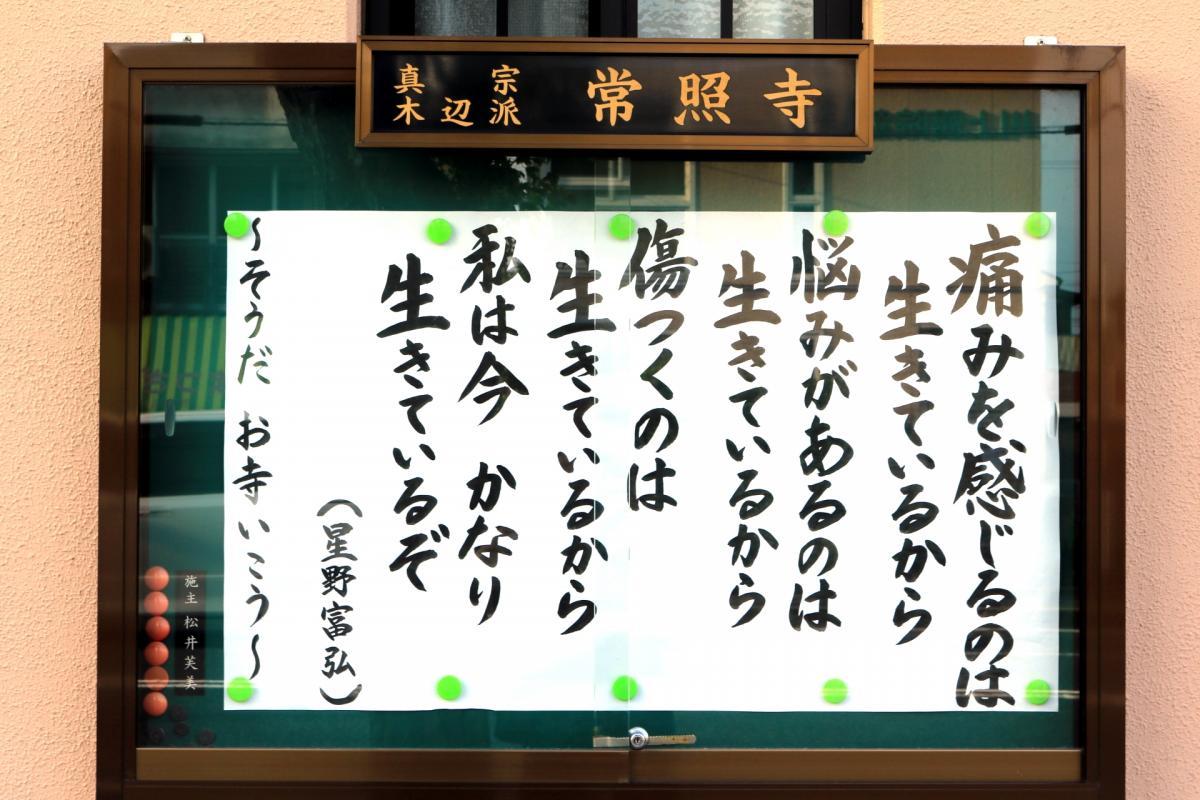 真宗
木辺派
常照寺
痛みを感じるのは
生きているから
悩みがあるのは
生きているから
傷つくのは
生きているから
私は今 かなり
生きているぞ
(星野富弘)
～そうだ お寺いこう～
施主 松井芙美